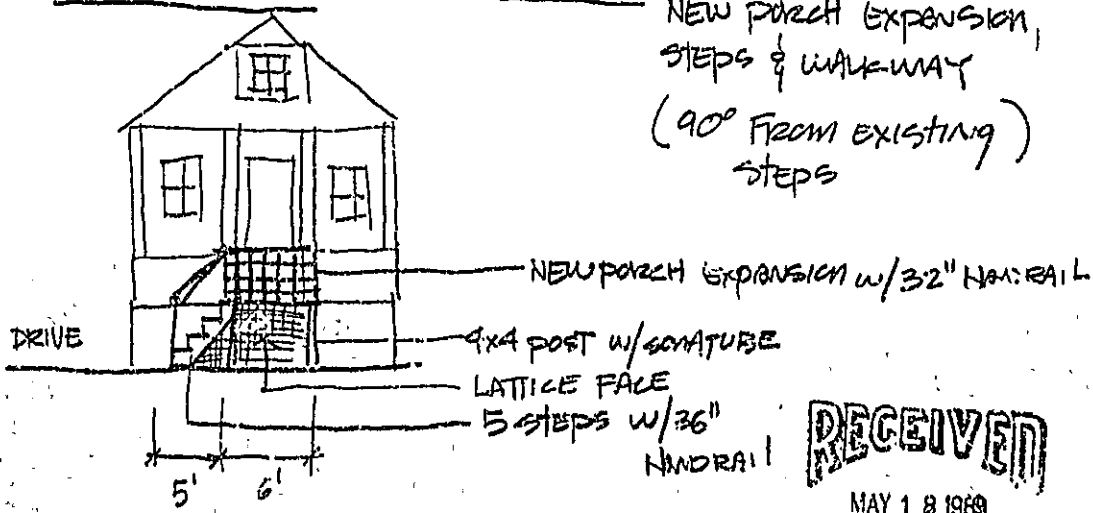 NEW PORCH EXPANSION,
STEPS & WALK-WAY
(90° FROM EXISTING)
STEPS
NEW PORCH EXPANSION w/32" HANDRAIL
DRIVE
4x4 POST w/SONATUBE
LATTICE FACE
5 STEPS w/36"
HANDRAIL
5' 6'
RECEIVED
MAY 18 1989